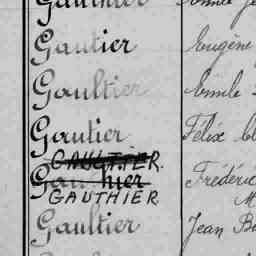 Gautier Eugène
Gaultier Émile
Gautier Félix
GAULTIER.
Gauthier Frédéric
GAUTHIER
Gaultier Jean